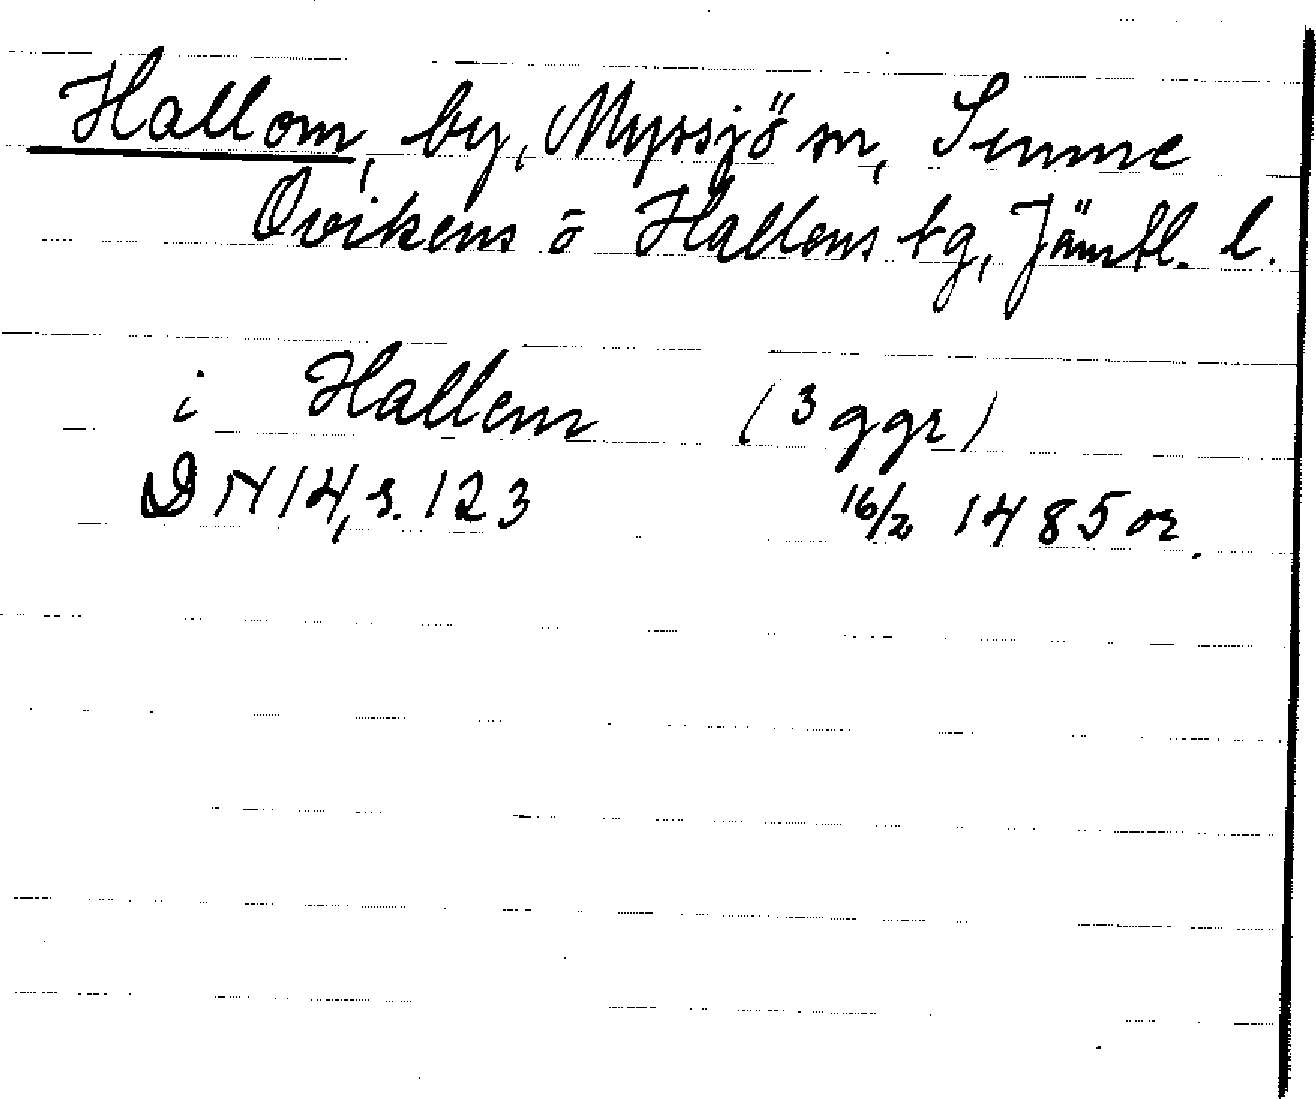 Hallom, by, Myssjö sn, Sunne
Ovikens o Hallens tg, Jämtl. l.
i Hallem (3 ggr)
DN 14, s. 123 16/2 1485 or.